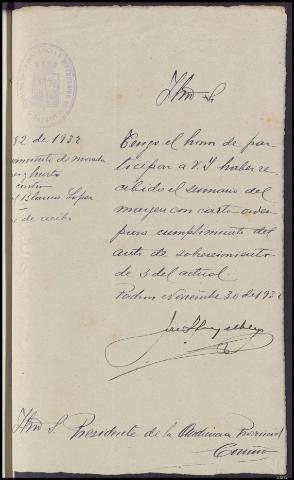 Iltmo S.
82 de 1932
Tengo el honor de par
ticipar a V. I. haber re
cibido el sumario del
margen con carta-orden
para cumplimiento del
auto de sobreseimiento
de 3 del actual
Padron Noviembre 30 de 1932
hurto
contra
Blanco Lopez
de recibo
Iltmo S. Presidente de la Audiencia Provincial
Coruña